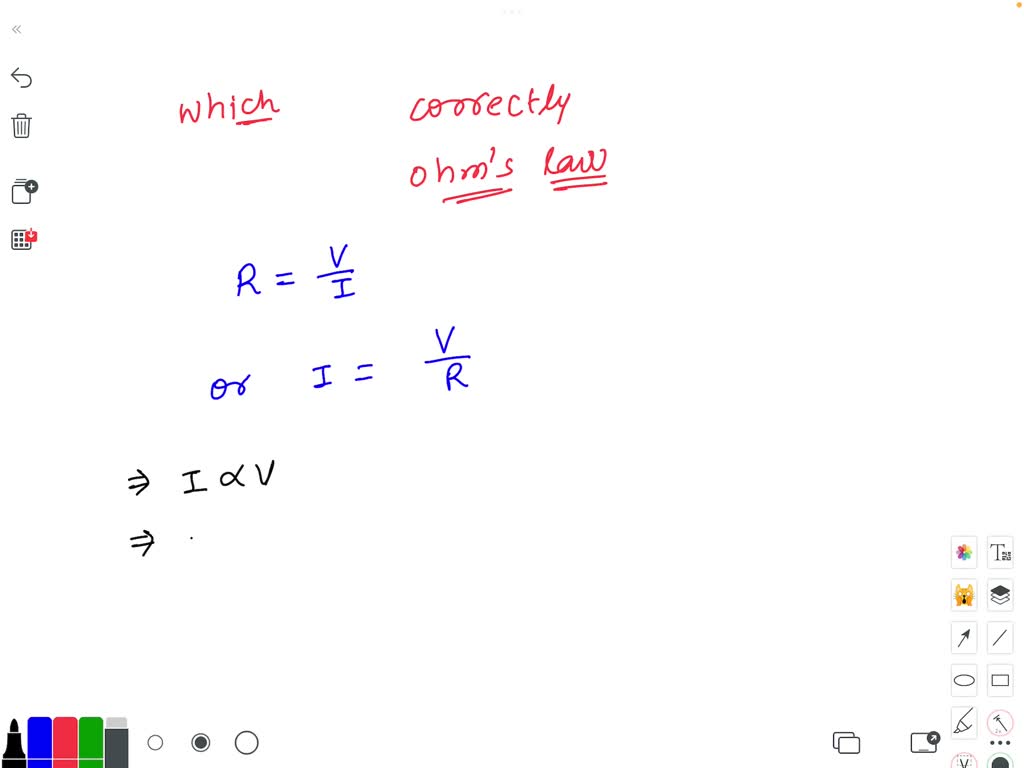 which correctly
ohm's law
R = V/I
or I = V/R
⇒ I ∝ V
⇒